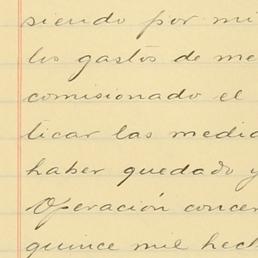 siendo por mi
los gastos de me
comisionado el
ticar las medid
haber quedado y
Operación concer
quince mil hech